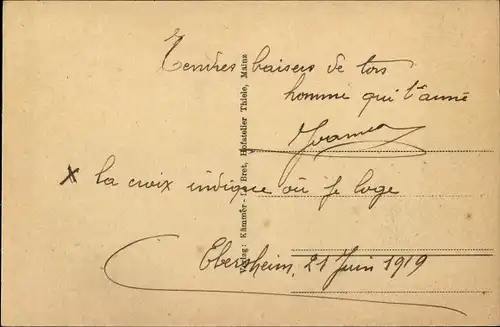 Tendres baisers de ton
homme qui t'aime
X la croix indique où je loge
Ebersheim, 21 Juin 1919
Verlag: Kämmer - Le Bret, Hofatelier Thiele, Mainz